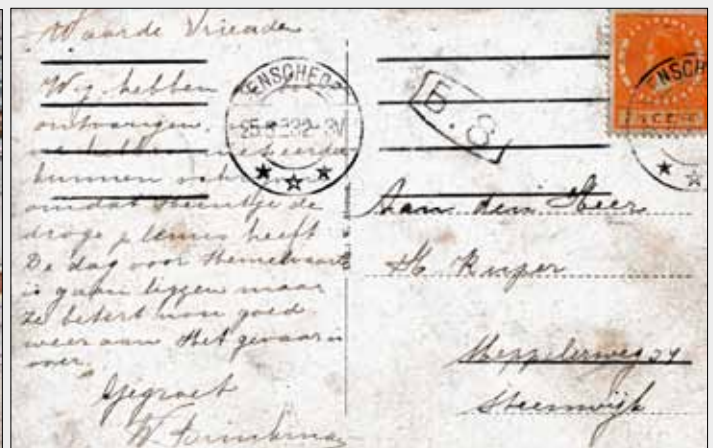 Waarde Vrienden
Wij hebben
ontvangen.
we hebben niet eerder
kunnen
omdat Heintje de
droge pleuris heeft
De dag voor Hemelvaart
is gaan liggen maar
ze betert nou goed
weer aan Het gevaar is
over,
Gegroet
W.
ENSCHEDE
B.8
ENSCH
Aan den Heer
H Kuiper
Meppelerweg 39
Steenwijk